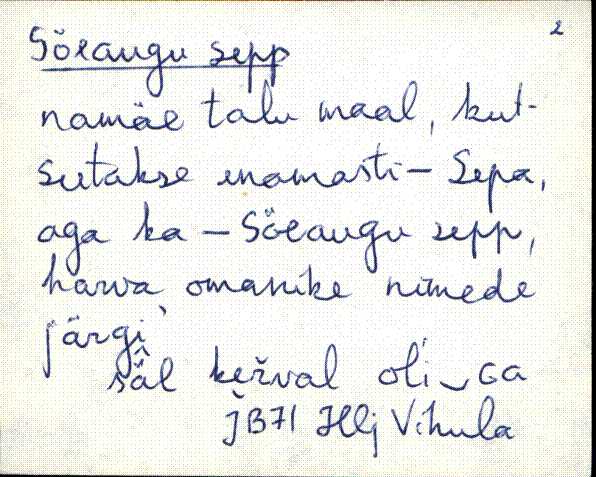 2
Söeaugu sepp
namäe talu maal, kut-
sutakse enamasti – Sepa,
aga ka – Söeaugu sepp,
harva omanike nimede
järgi.
kežval oli
JB71 Hlj Vihula